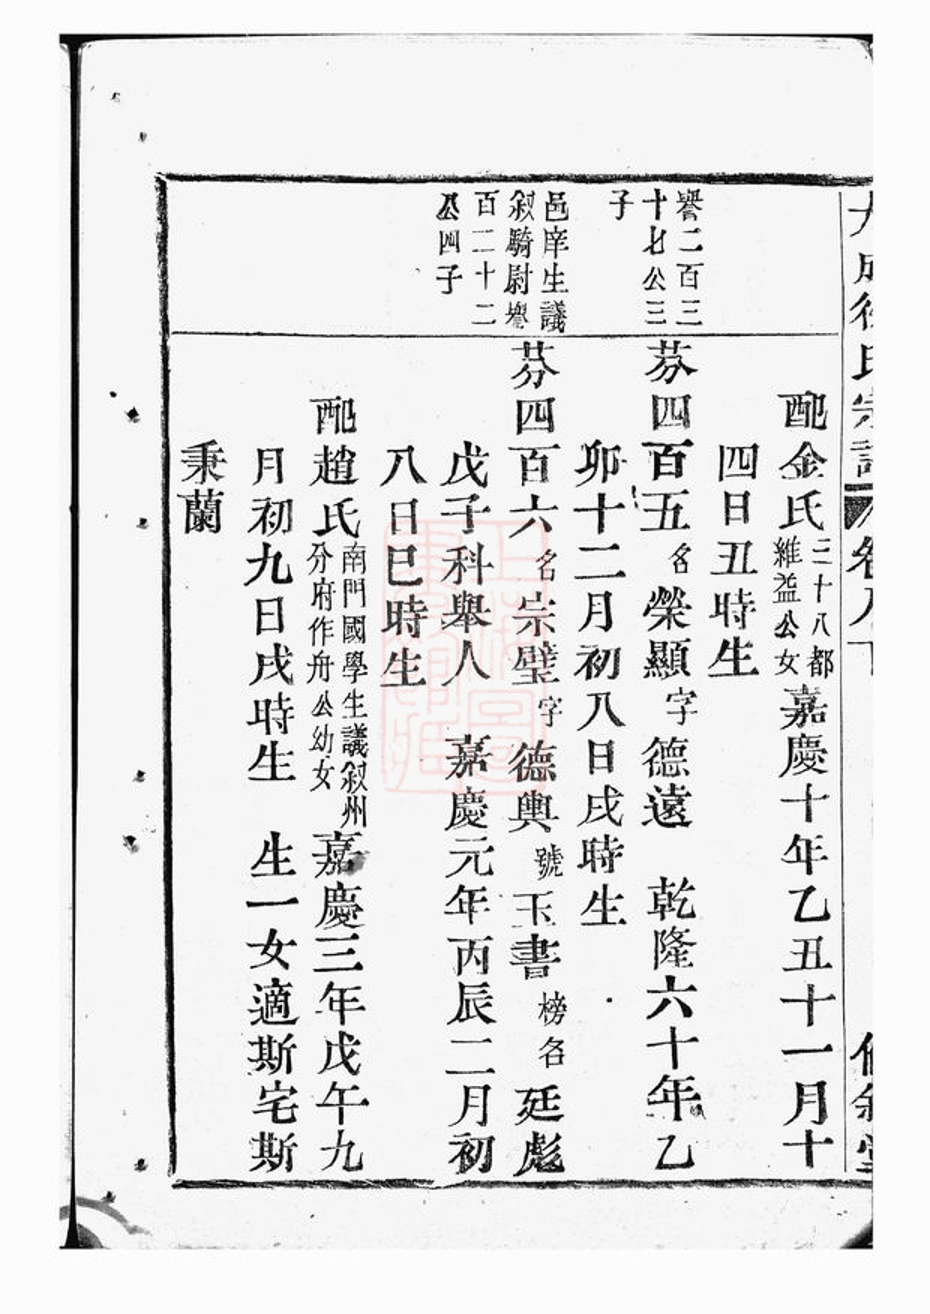 配金氏二十八都維益公女嘉慶十年乙丑十一月十
四日丑時生
譽二百三
十七公三
子
芬四百五名榮顯字德遠 乾隆六十年乙
卯十二月初八日戌時生
邑庠生議
敘騎尉譽
百二十二
公四子
芬四百六名宗璧字德輿號玉書榜名廷彪
戊子科舉人 嘉慶元年丙辰二月初
八日巳時生
配趙氏南門國學生議敘州分府作舟公幼女嘉慶三年戊午九
月初九日戌時生 生一女適斯宅斯
秉蘭